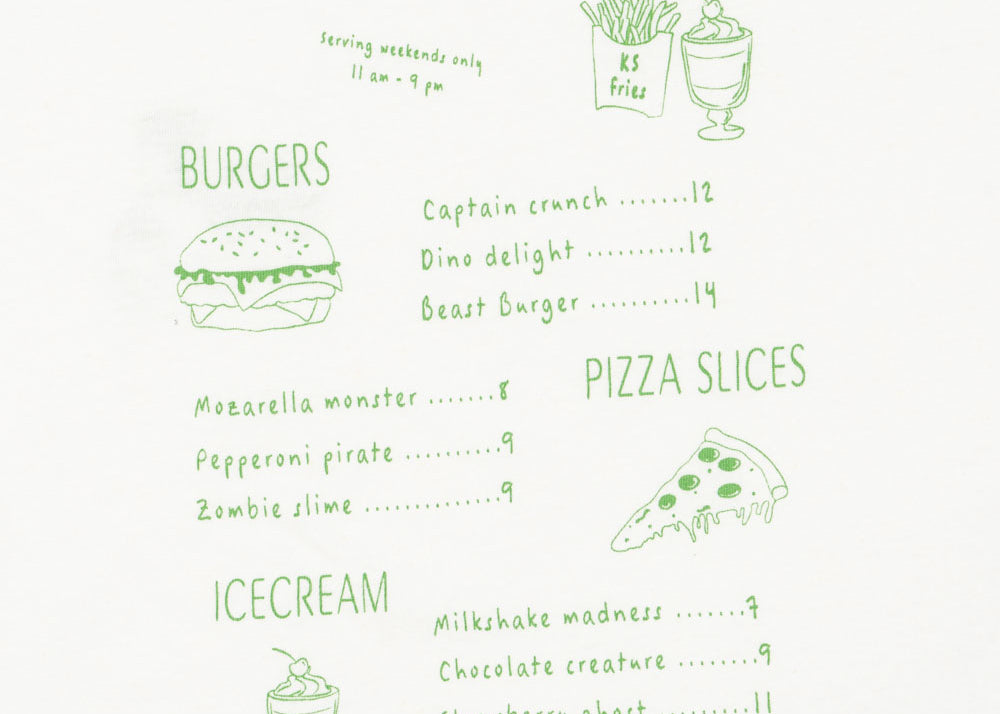 serving weekends only
11 am - 9 pm
KS
fries
BURGERS
Captain crunch .......12
Dino delight ..........12
Beast Burger ..........14
PIZZA SLICES
Mozarella monster .......8
Pepperoni pirate ..........9
Zombie slime ..............9
ICECREAM
Milkshake madness .......7
Chocolate creature ........9
.........11